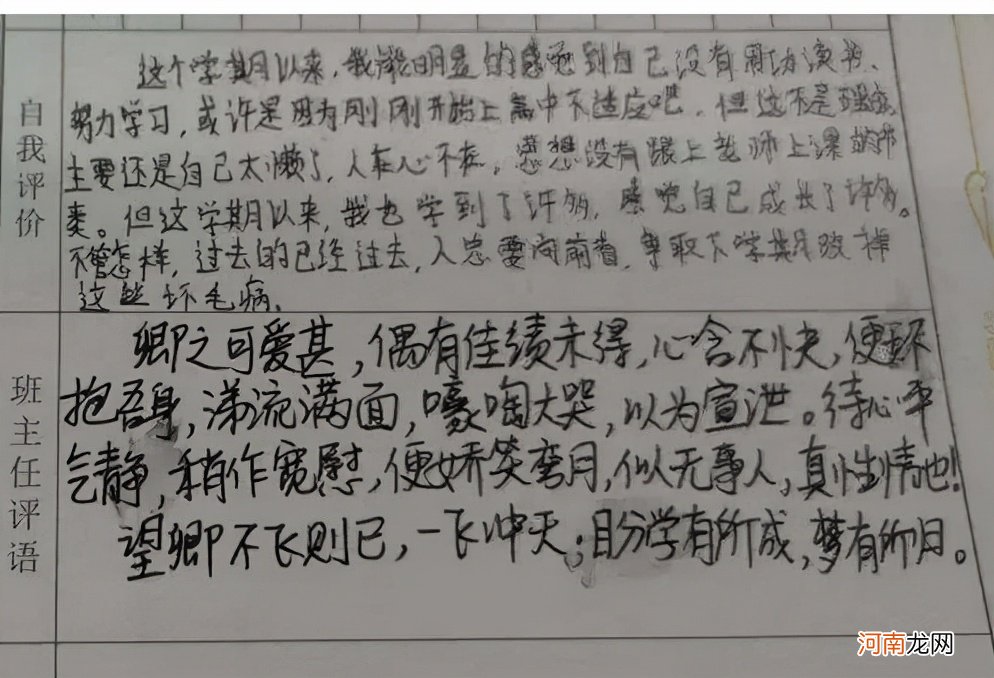 自我评价
这个学期以来,我能明显的感觉到自己没有用功读书、
努力学习,或许是因为刚刚开始上高中不适应吧。但这不是理由,
主要还是自己太懒了,人在心不在,思想没有跟上老师上课的节
奏。但这学期以来,我也学到了许多,感觉自己成长了许多。
不管怎样,过去的已经过去,人总要向前看,争取下学期改掉
这些坏毛病。
班主任评语
卿之可爱甚,偶有佳绩未得,心含不快,便环
抱吾身,涕流满面,嚎啕大哭,以为宣泄。待心平
气静,稍作宽慰,便娇笑弯月,似无事人,真性情也!
望卿不飞则已,一飞冲天;自分学有所成,梦有所归。
河南龙网